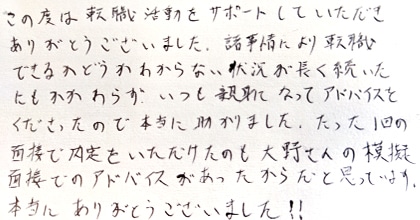 この度は転職活動をサポートしていただき
ありがとうございました。諸事情により転職
できるかどうかわからない状況が長く続いた
にもかかわらず、いつも親身になってアドバイスを
くださったので本当に助かりました。たった1回の
面接で内定をいただけたのも大野さんの模擬
面接でのアドバイスがあったからだと思っています。
本当にありがとうございました!!